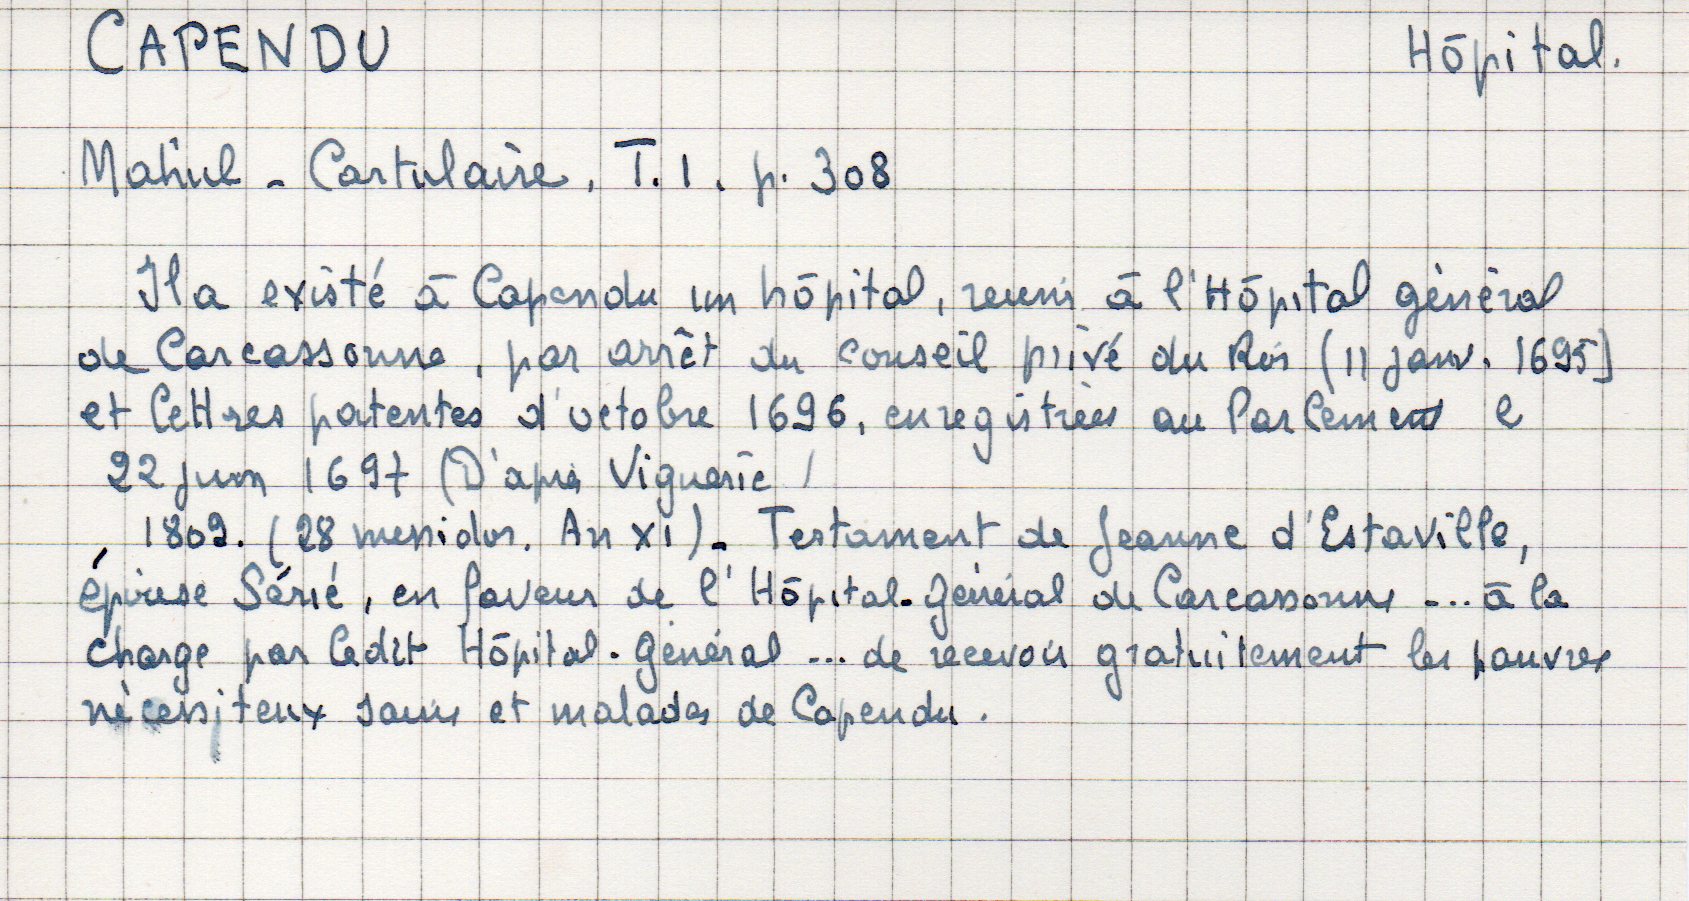 CAPENDU Hôpital.
Mahul - Cartulaire. T.I. p. 308
Il a existé à Capendu un hôpital, reuni à l'Hôpital général
de Carcassonne, par arrêt du conseil privé du Roi (11 janv. 1695)
et lettres patentes d'octobre 1696, enregistrées au Parlement le
22 juin 1697 (D'après Viguerie)
1809. (28 messidor. An XI) - Testament de Jeanne d'Estaville,
épouse Sérié, en faveur de l'Hôpital-Général de Carcassonne ... à la
charge par ledit Hôpital-Général ... de recevoir gratuitement les pauvres
nécessiteux sains et malades de Capendu.